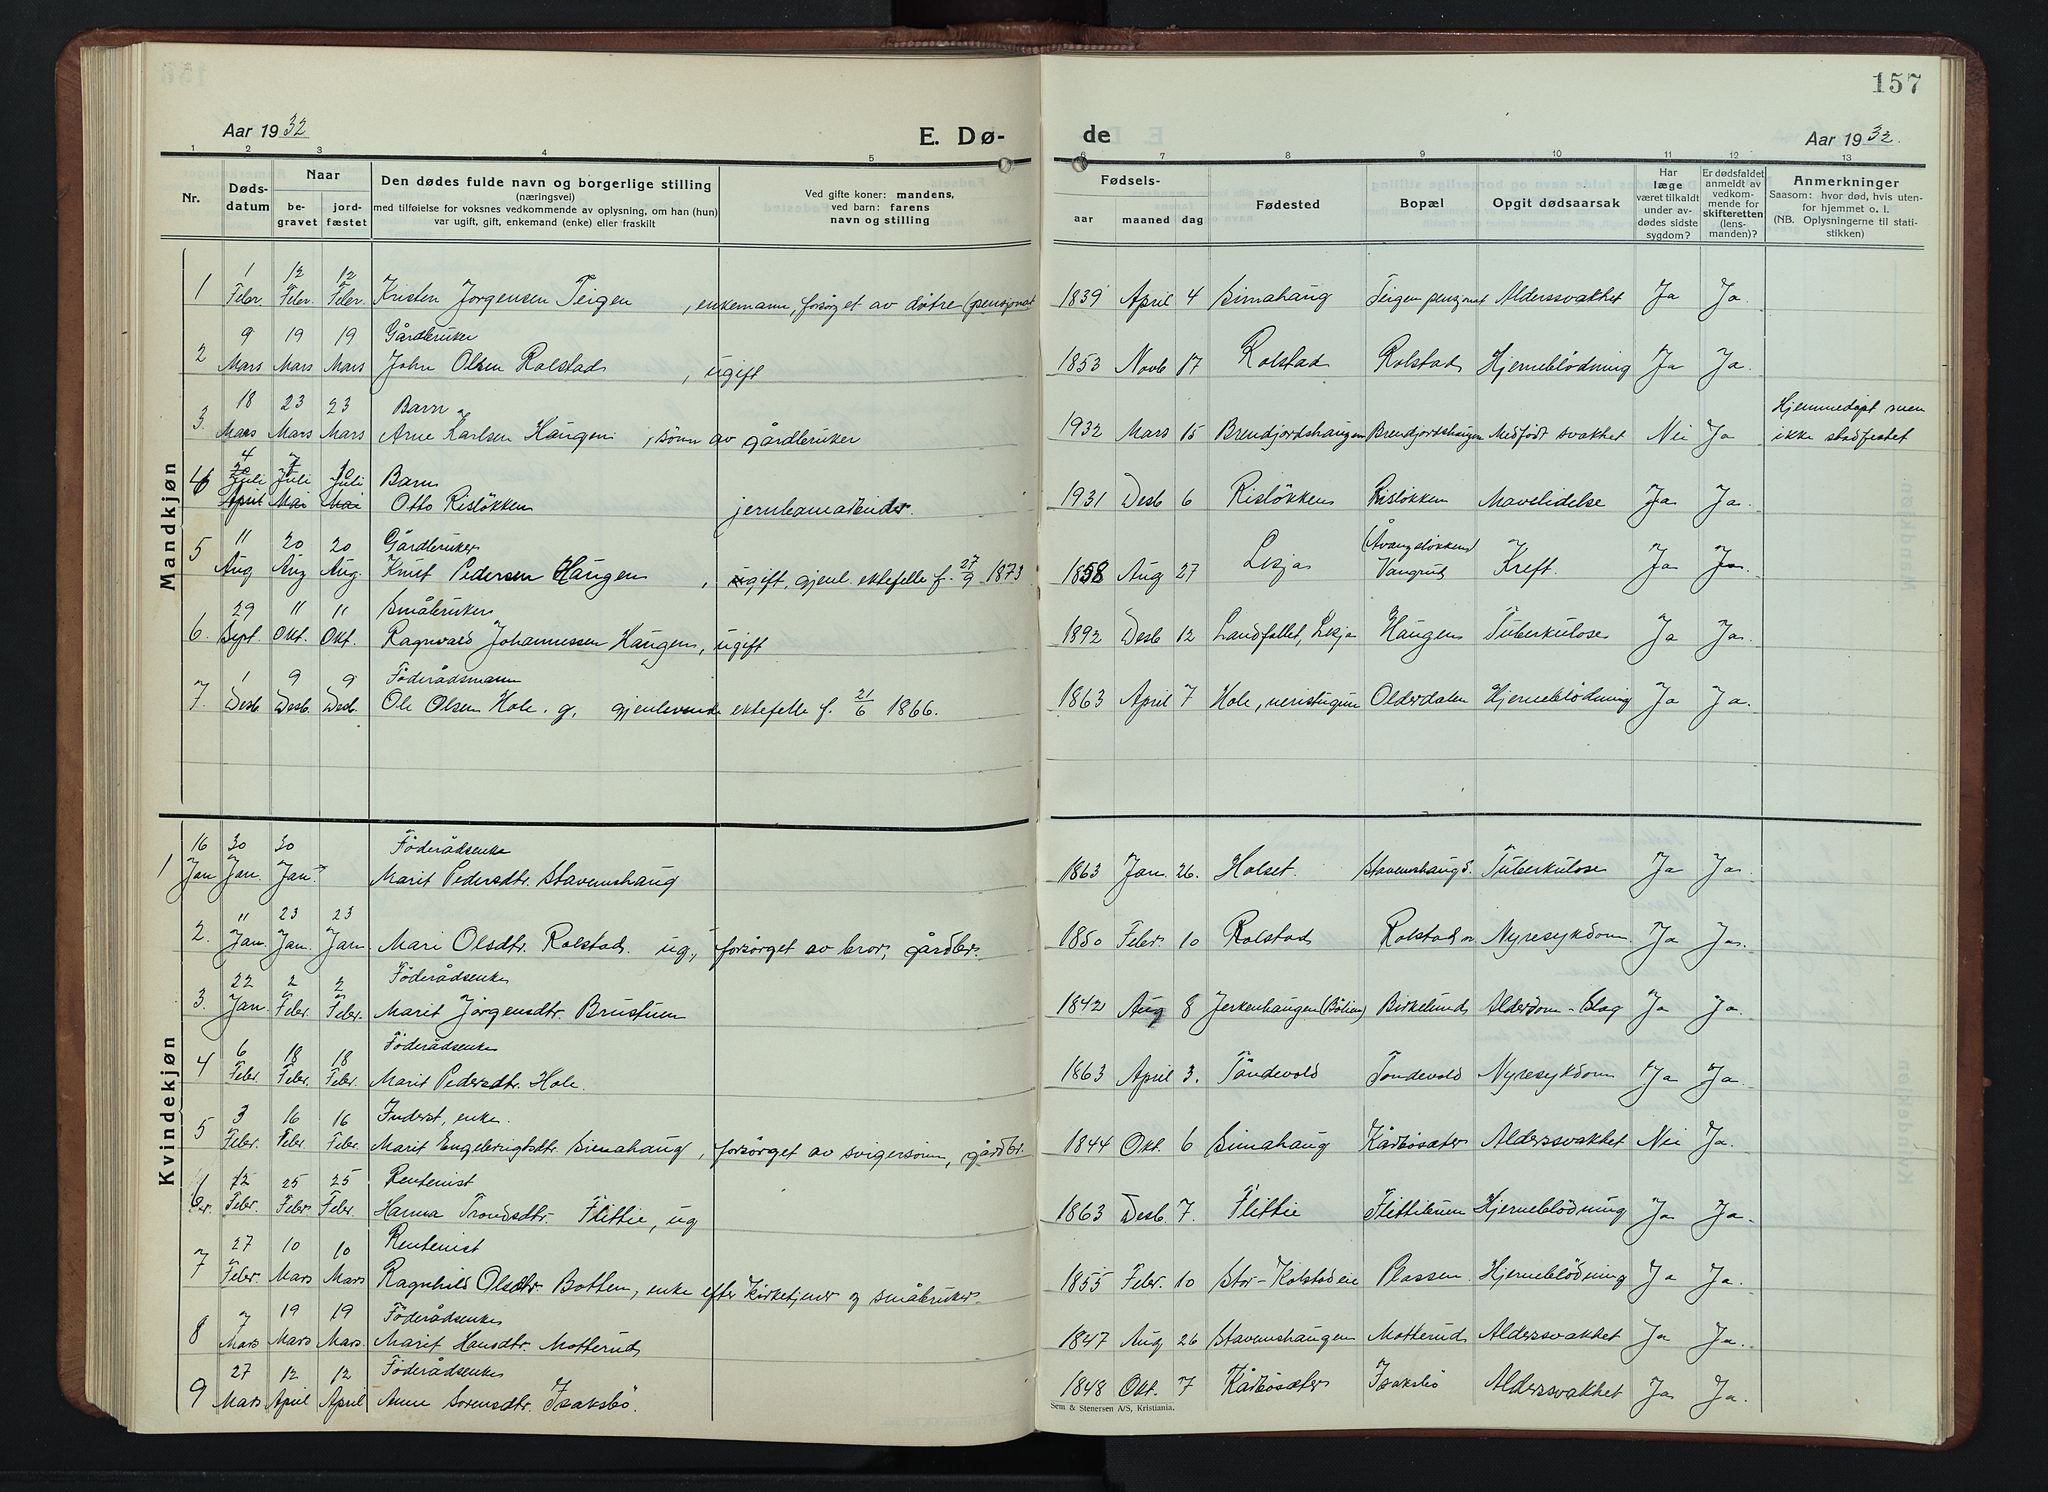 157
Aar 1932
E. Dø-
de
Aar 1932.
1 2 3 4 5 6 7 8 9 10 11 12 13
Nr.
Døds-
datum
Naar
be-
gravet
jord-
fæstet
Den dødes fulde navn og borgerlige stilling
(næringsvei)
med tilføielse for voksnes vedkommende av oplysning, om han (hun)
var ugift, gift, enkemand (enke) eller fraskilt
Ved gifte koner: mandens,
ved barn: farens
navn og stilling
Fødsels-
aar maaned dag
Fødested
Bopæl
Opgit dødsaarsak
Har
læge
været tilkaldt
under av-
dødes sidste
sygdom?
Er dødsfaldet
anmeldt av
vedkom-
mende for
skifteretten
(lens-
manden)?
Anmerkninger
Saasom: hvor død, hvis uten-
for hjemmet o. l.
(NB. Oplysningerne til stati-
stikken)
Mandkjøn
1 12 12
1 Febr. Febr. Febr. Kristen Jørgensen Teigen, enkemann, forsørget av døtre (pensjonat 1839 April 4 Simahaug Teigen pensjonat Alderssvakhet Ja Ja.
9 19 19 Gårdbruker
2 Mars Mars Mars John Olsen Rolstad, ugift 1853 Novb 17 Rolstad Rolstad Hjerneblödning Ja Ja.
18 23 23 Barn
3. Mars Mars Mars Arne Karlsen Haugen, sönn av gårdbruker 1932 Mars 15 Brendjordshaugen Brendjordshaugen Medfödt svakhet Nei Ja Hjemmedöpt men
ikke stadfestet
4 Juli Juli Juli Barn
April Mai Mai Otto Rislökken jernbanearbeider. 1931 Desb 6 Rislökken Rislökken Mavelidelse Ja Ja.
11 20 20 Gårdbruker
5 Aug Aug Aug. Knut Pedersen Haugen, gift, gjenl. ektefelle f. 27/9 1873 1858 Aug 27 Lesja Vangrud Kreft. Ja Ja.
29 11 11 Småbruker
6. Sept. Okt. Okt. Ragnvald Johannessen Haugen, ugift 1892 Desb 12 Landfallet, Lesja Haugen Tuberkulose Ja Ja.
1 9 9 Föderådsmann
7. Desb. Desb. Desb. Ole Olsen Hole. g, gjenlevende ektefelle f. 21/6 1866. 1863 April 7 Hole, neristugun Olderdalen Hjerneblödning Ja Ja.
Kvindekjøn
16 30 30 Föderådsenke
1 Jan Jan. Jan. Marit Pedersdtr. Stavemshaug 1863 Jan. 26. Holset. Stavemshaugd. Tuberkulose Ja Ja.
11 23 23
2. Jan. Jan. Jan. Mari Olsdtr. Rolstad. ug, forsörget av bror, gårdbr. 1850 Febr 10 Rolstad Rolstad Nyresykdom. Ja Ja.
22 2 2 Föderådsenke
3. Jan. Febr. Febr. Marit Jörgensdtr. Brustuen 1842 Aug 8 Jerkenhaugen Birkelund Alderdom - Slag Ja Ja.
6 18 18 Föderådsenke
4 Febr. Febr. Febr. Marit Pedersdtr. Hole. 1863 April 3. Töndevold Töndevold Nyresykdom Ja Ja.
3 16 16 Inderst, enke.
5 Febr. Febr. Febr. Marit Engebrigtsdtr. Simahaug, forsörget av svigersönn, gårdbr. 1844 Okt. 6 Simahaug Kårbösæter Alderssvakhet Nei Ja.
12 25 25 Rentenist
6 Febr. Febr Febr. Hanna Trondsdtr. Flittie, ug 1863 Desb. 7. Flittie Flittiebrun Hjerneblödning Ja Ja.
27 10 10 Rentenist
7 Febr. Mars Mars Ragnhild Olsdtr. Botten, enke efter Kirketjener og småbruker. 1855 Febr. 10 Stor-Kolstadeie Plassen. Hjerneblödning Ja Ja.
7 19 19 Föderådsenke
8 Mars Mars Mars. Marit Hansdtr. Motterud 1847 Aug 26 Stavemshaugen Motterud Alderssvakhet Ja Ja.
27 12 12 Föderådsenke
9 Mars April April Anne Sorensdtr. Isaksbö. 1848 Okt. 7 Kårbösæter Isaksbö Alderssvakhet Ja Ja.
Sem & Stenersen A/S, Kristiania.